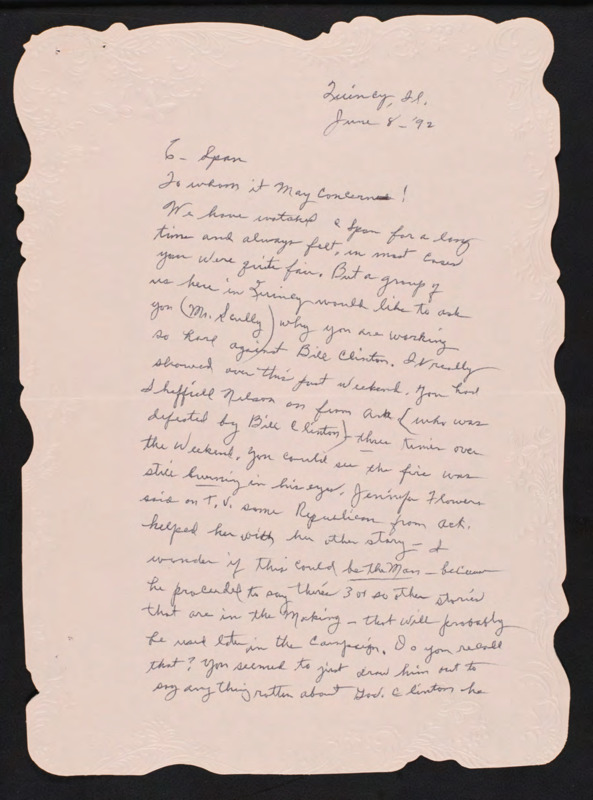 Quincy, Il.
June 8 - '92
C - Span
To whom it May Concern !
We have watched C Span for a long
time and always felt, in most cases
you were quite fair. But a group of
us here in Quincy would like to ask
you (Mr. Scully) why you are working
so hard against Bill Clinton. It really
showed over this past weekend. You had
Sheffield Nelson on from Ark (who was
defeated by Bill Clinton) three times over
the weekend. You could see the fire was
still burning in his eyes. Jennifer Flowers
said on T.V. some Republican from Ark.
helped her with her other story - I
wonder if this could be the Man - because
he proceeded to say there's 3 or so other stories
that are in the Making - that will probably
be used later in the Campaign. Do you recall
that? You seemed to just draw him out to
say anything rotten about Gov. Clinton he